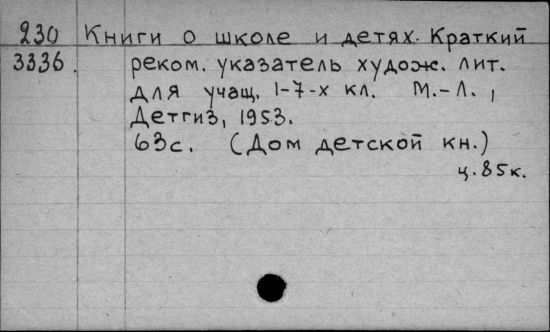 230 Книги о школе и детях. Краткий
3336. реком. указатель худож. лит.
для учащ. 1-7-х кл. М.-Л.,
Детгиз, 1953.
63с. (Дом детской кн.)
ц. 85к.